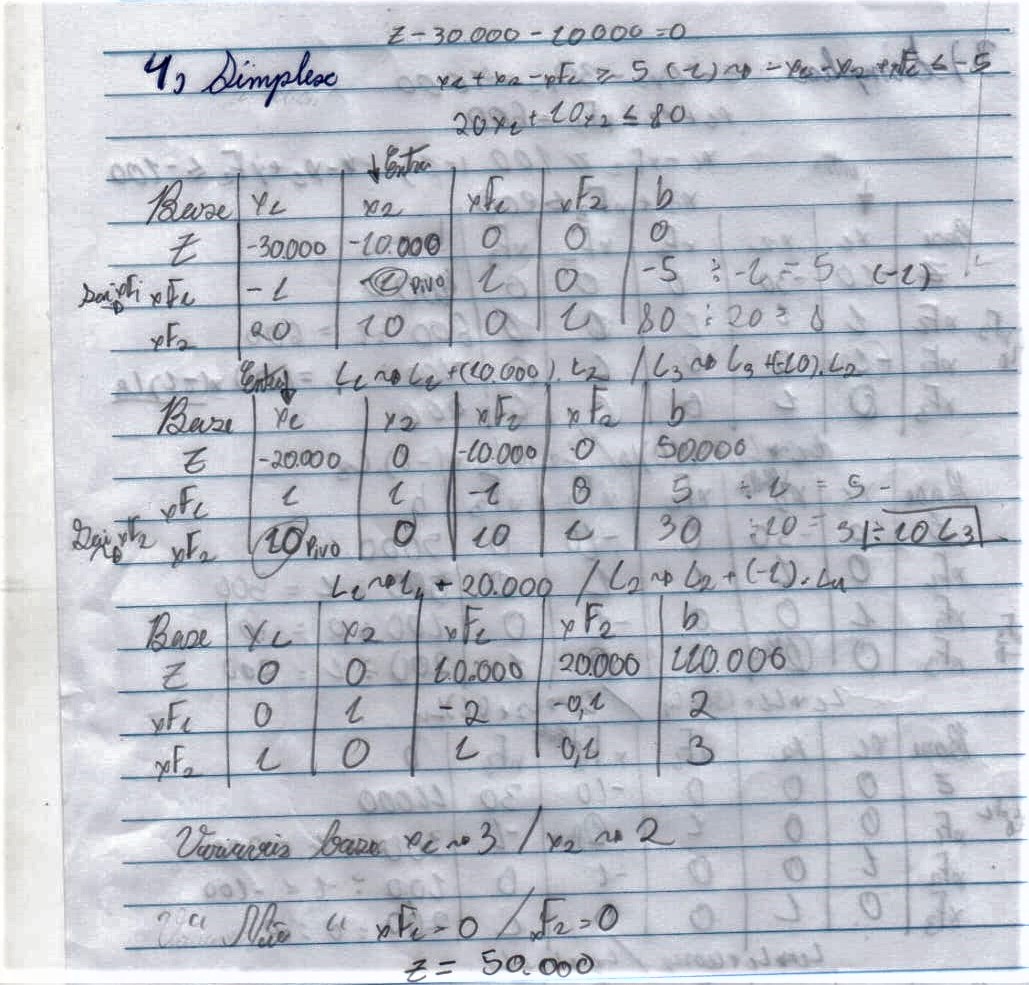 Z - 30.000 - 10000 = 0
4) Simplex x1 + x2 - xF1 ≥ 5 (-1) ~> - x1 - x2 + xF1 ≤ -5
20x1 + 10x2 ≤ 80
↓ Entra
Base x1 x2 xF1 xF2 b
Z -30.000 -10.000 0 0 0
Sai xF1 xF1 -1 -1 Pivo 1 0 -5 ÷ -1 = 5 (-1)
xF2 20 10 0 1 80 ÷ 10 = 8
Entra ↓ L1 ~> L1 + (10.000) . L2 / L3 ~> L3 + (-10) . L2
Base x1 x2 xF2 xF2 b
Z -20.000 0 -10.000 0 50.000
xF1 1 1 -1 0 5 ÷ 1 = 5 -
Sai xF2 xF2 10 Pivo 0 10 1 30 ÷ 10 = 3 ÷ 10 L3
L1 ~> L1 + 20.000 / L2 ~> L2 + (-1) . L1
Base x1 x2 xF1 xF2 b
Z 0 0 10.000 20.000 110.000
xF1 0 1 -2 -0,1 2
xF2 1 0 1 0,1 3
Variaveis base x1 ~> 3 / x2 ~> 2
" Não " xF1 = 0 / xF2 = 0
Z = 50.000